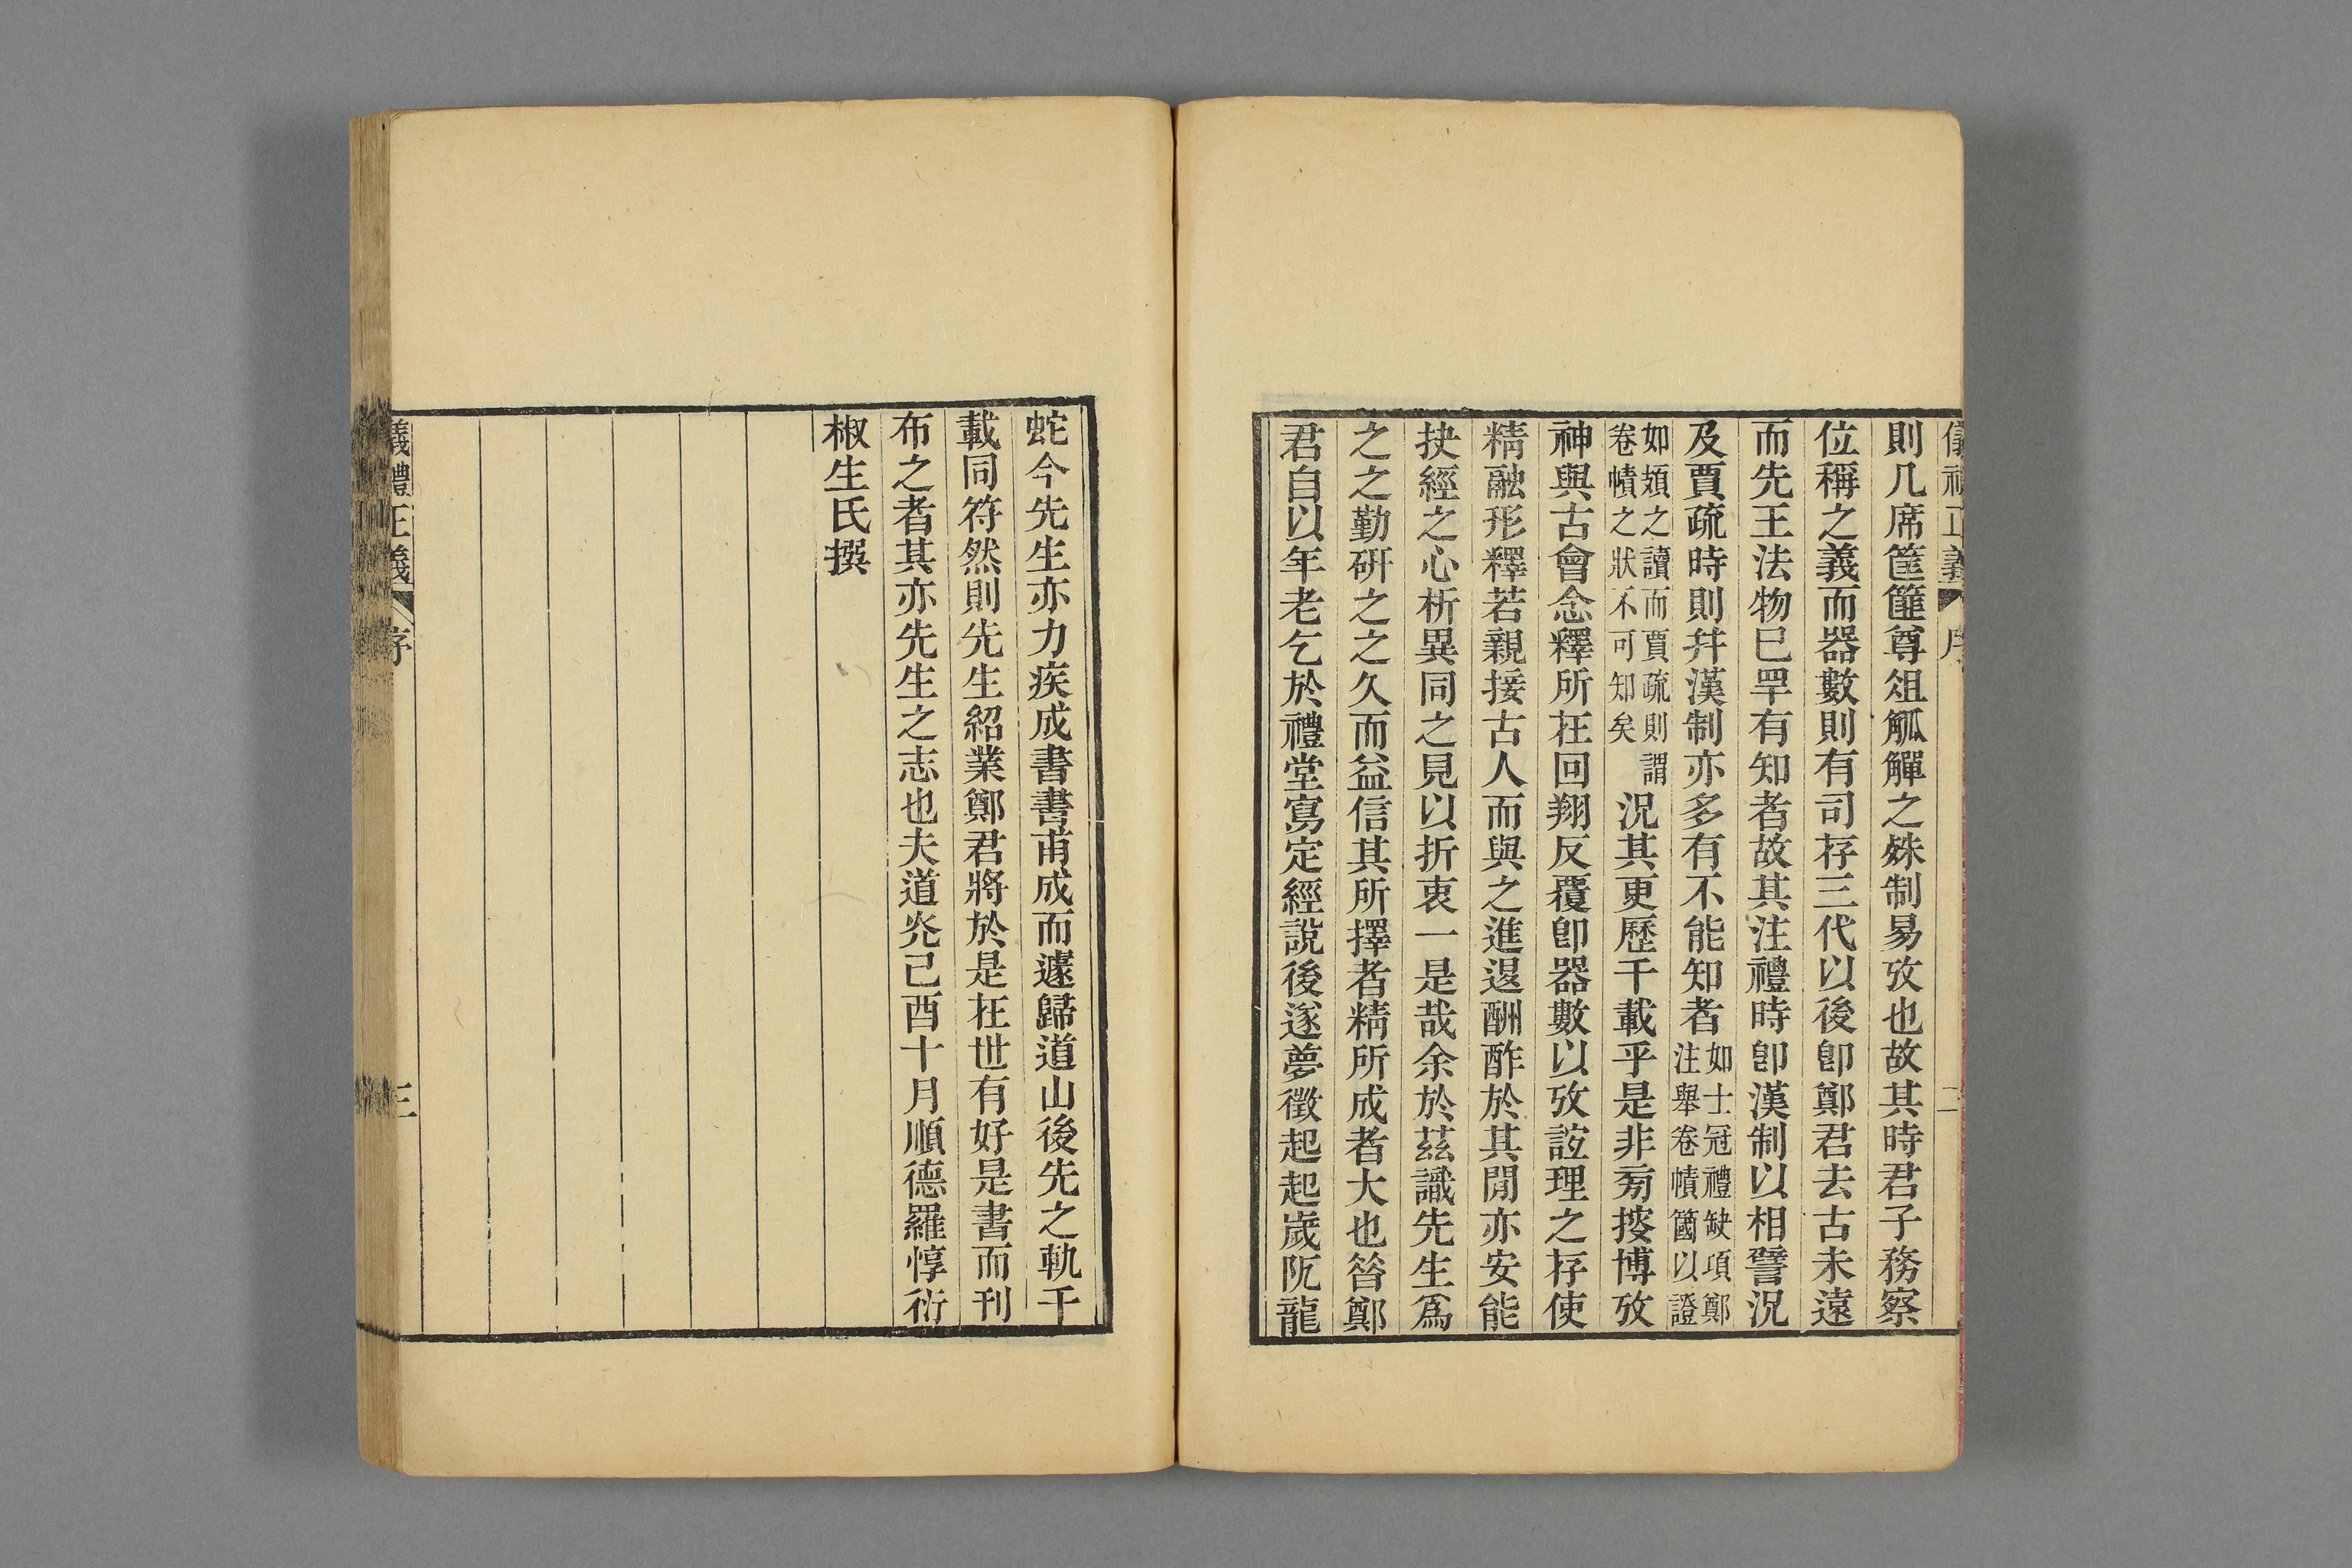 儀禮正義 序 二
則几席筐篚尊俎觚觶之殊制易攷也故其時君子務察
位稱之義而器數則有司存三代以後卽鄭君去古未遠
而先王法物巳罕有知者故其注禮時卽漢制以相譬況
及賈疏時則幷漢制亦多有不能知者如士冠禮缺項鄭
注舉卷幘簂以證
如頍之讀而賈疏則謂
卷幘之狀不可知矣況其更歷千載乎是非旁搜博攷
神與古會念釋所在回翔反覆卽器數以攷誼理之存使
精融形釋若親接古人而與之進退酬酢於其閒亦安能
抉經之心析異同之見以折衷一是哉余於茲識先生爲
之之勤硏之之久而益信其所擇者精所成者大也昝鄭
君自以年老乞於禮堂寫定經說後遂夢徵起起歲阨龍
蛇今先生亦力疾成書書甫成而遽歸道山後先之軌千
載同符然則先生紹業鄭君將於是在世有好是書而刊
布之者其亦先生之志也夫道光己酉十月順德羅惇衍
椒生氏撰
儀禮正義 序 三